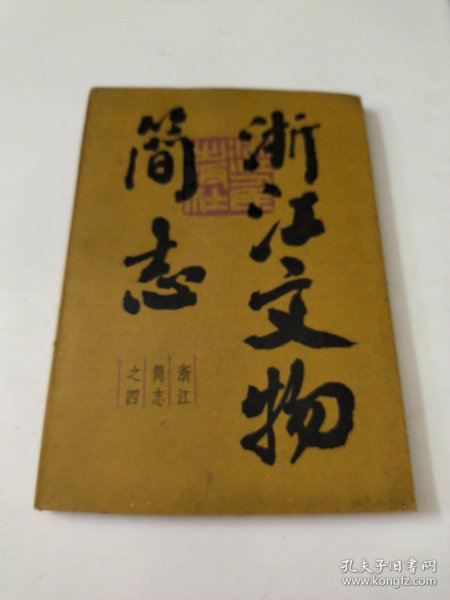 浙江文物
简志
浙江
简志
之四
孔夫子旧书网
www.kongfz.com